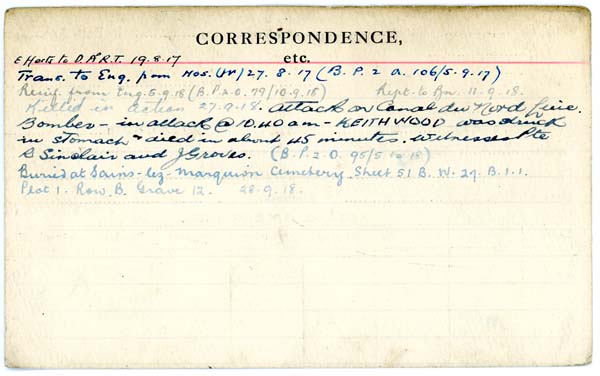 CORRESPONDENCE,
etc.
Effects to D.A.R.T. 19.8.17
Trans. to Eng. from Hos. (W) 27.8.17 (B.P.2 a. 106/5.9.17)
Reinf. from Eng. 5.9.18 (B.P.2.O. 79/10.9.18) Rept. to Bn. 11.9.18.
Killed in action 27.9.18. attack on Canal du Nord line.
Bomber - in attack @ 10.40 am - KEITH WOOD was struck
in stomach & died in about 45 minutes. Witnesses Pte
S Sinclair and J Greves. (B.P.2.O. 95/5.10.18)
Buried at Sains-lez-Marquion Cemetery Sheet 51 B. W. 27. B.1.1.
Plot 1. Row B. Grave 12. 28.9.18.